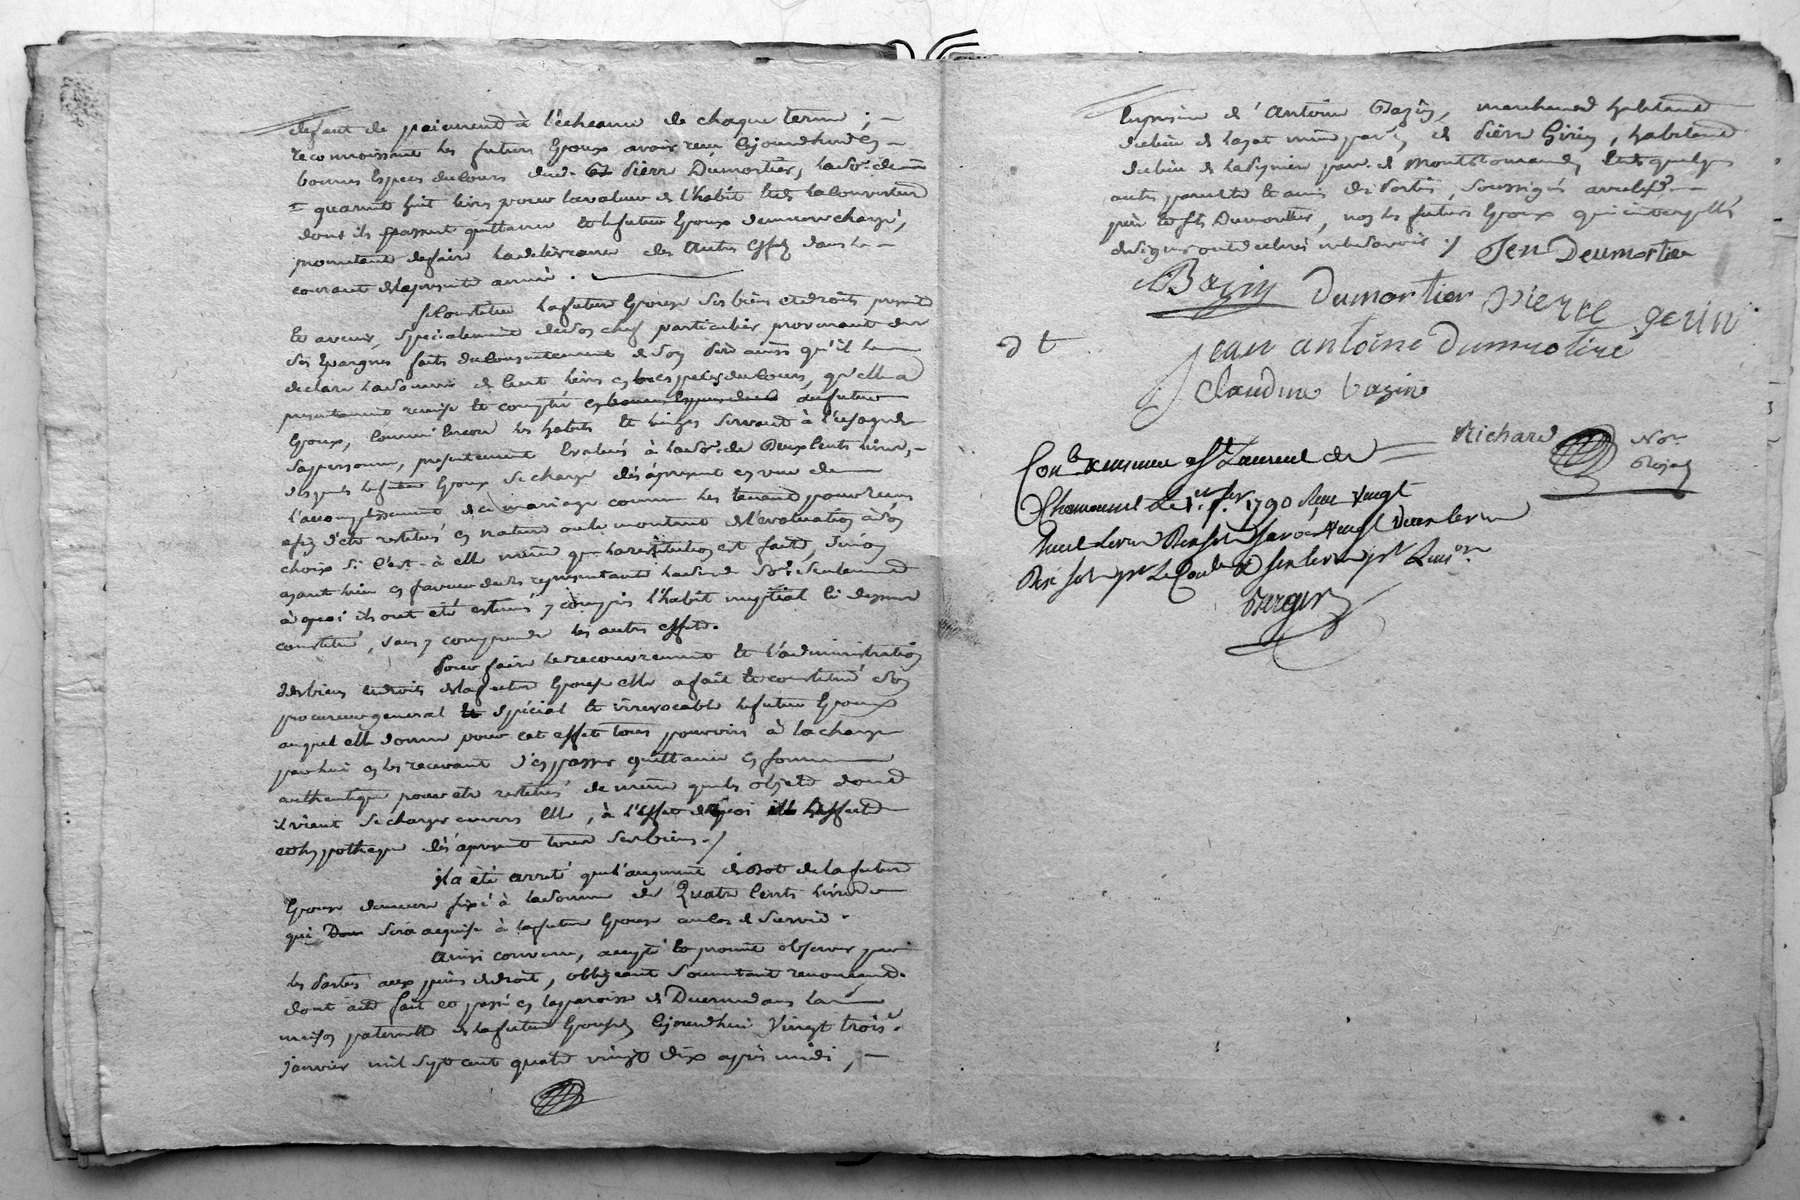 deffaut de paiement à l'écheance de chaque terme ; –
reconnoissant les futurs Epoux avoir reçu cejourdhui en –
bonnes Especes du cours dud. Pierre Dumortier, la so.e de
quarante huit livres pour la valeur de l'habit et de la couverture
dont ils passent quittance et le futur Epoux demeure chargé,
promettant de faire la délivrance des autres effets dans le –
courant de la presente année . –
Se constitue la future Epouse ses biens et droits presents
et avenir, spécialement de son chef particulier provenant de
ses Epargnes faits du consentement de son Père ainsi qu'il le
declare la somme de Cent livres en especes du cours, qu'elle a
presentement remise et comptée au futur
Epoux, comme encore les habits et linges servant à l'usage de
sa personne, presentement Evalués à la so.e de Deux Cents livres, –
desquels le futur Epoux se charge dès àpresent en vue de
l'accomplissement de ce mariage comme les tenant pour reçus
afin d'etre restitués en nature ou le montant de l'évaluation à son
choix si c'est à elle même que la restitution est faite, sinon
ayant lieu en faveur de ses représentants ladite So.e seulement
à quoi ils ont été estimés y compris l'habit nuptial ci dessus
constitué, sans y comprendre les autres effets.
Pour faire le recouvrement et l'administration
des biens et droits de la future Epouse elle a fait et constitué son
procureur general et spécial et irrevocable le futur Epoux
auquel elle donne pour cet effet tous pouvoirs à la charge
par lui en les recevant d'en passer quittance en forme
authentique pour etre restitués de même que les objets dont
il vient se charger envers elle, à l'effet de quoi il affecte
et hypotheque dès àpresent tous ses biens ./
Il a été arreté que l'augment de Dot de la future
Epouse demeure fixé à la somme de Quatre Cents livres
qui sera acquise à la future Epouse en cas de survie .
Ainsi convenu, accepté et promis observer par
les Parties aux peines de droit, obligeant soumettant renonçant .
dont acte fait et passé en la paroisse de Duerne dans la
maison paternelle de la future Epouse, cejourdhui Vingt trois.e
janvier mil sept cent quatre vingt dix après midi, –
En presence de s.r Antoine Bazin, marchand habitant
du lieu de lazat même par.e, de Pierre Girin, habitant
du lieu de par. de Montromand, et de quelques
autres parents et amis des Parties, soussignés avec les d.
père et fils Dumortier, non les futurs Epoux qui interpellés
de signer ont déclaré ne le savoir ./ Jen Deumortier
Bazin Dumortier Pierre gerin
jean antoine Dumortiere
Claudine bazin
Richard No.re
Royal
Con.lé & insinué a St Laurent de
Chamousset le 1.er f.er 1790 Reçu vingt
huit livres Dix sols Savoir vingt deux livres
Dix sols p.r Le Con.le & six livres p.r L'insi.on
Verger